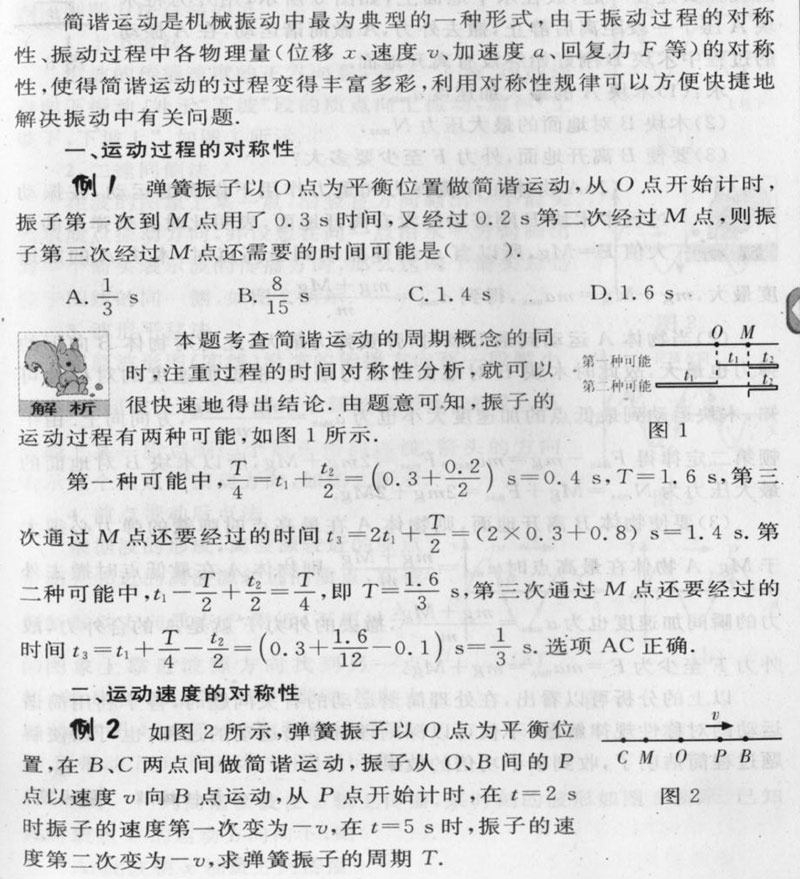 简谐运动是机械振动中最为典型的一种形式,由于振动过程的对称
性、振动过程中各物理量(位移 x、速度 v、加速度 a、回复力 F 等)的对称
性,使得简谐运动的过程变得丰富多彩,利用对称性规律可以方便快捷地
解决振动中有关问题.
一、运动过程的对称性
例1 弹簧振子以 O 点为平衡位置做简谐运动,从 O 点开始计时,
振子第一次到 M 点用了 0.3 s 时间,又经过 0.2 s 第二次经过 M 点,则振
子第三次经过 M 点还需要的时间可能是( ).
A. 1/3 s B. 8/15 s C. 1.4 s D. 1.6 s
解析
本题考查简谐运动的周期概念的同
时,注重过程的时间对称性分析,就可以
很快速地得出结论.由题意可知,振子的
运动过程有两种可能,如图 1 所示.
O M
第一种可能 t₁ t₂
第二种可能 t₁ t₂
图 1
第一种可能中,T/4=t₁+t₂/2=(0.3+0.2/2) s=0.4 s,T=1.6 s,第三
次通过 M 点还要经过的时间 t₃=2t₁+T/2=(2×0.3+0.8) s=1.4 s.第
二种可能中,t₁-T/2+t₂/2=T/4,即 T=1.6/3 s,第三次通过 M 点还要经过的
时间 t₃=t₁+T/4-t₂/2=(0.3+1.6/12-0.1) s=1/3 s.选项 AC 正确.
二、运动速度的对称性
例2 如图 2 所示,弹簧振子以 O 点为平衡位
置,在 B、C 两点间做简谐运动,振子从 O、B 间的 P
点以速度 v 向 B 点运动,从 P 点开始计时,在 t=2 s
时振子的速度第一次变为-v,在 t=5 s 时,振子的速
度第二次变为-v,求弹簧振子的周期 T.
v
C M O P B
图 2